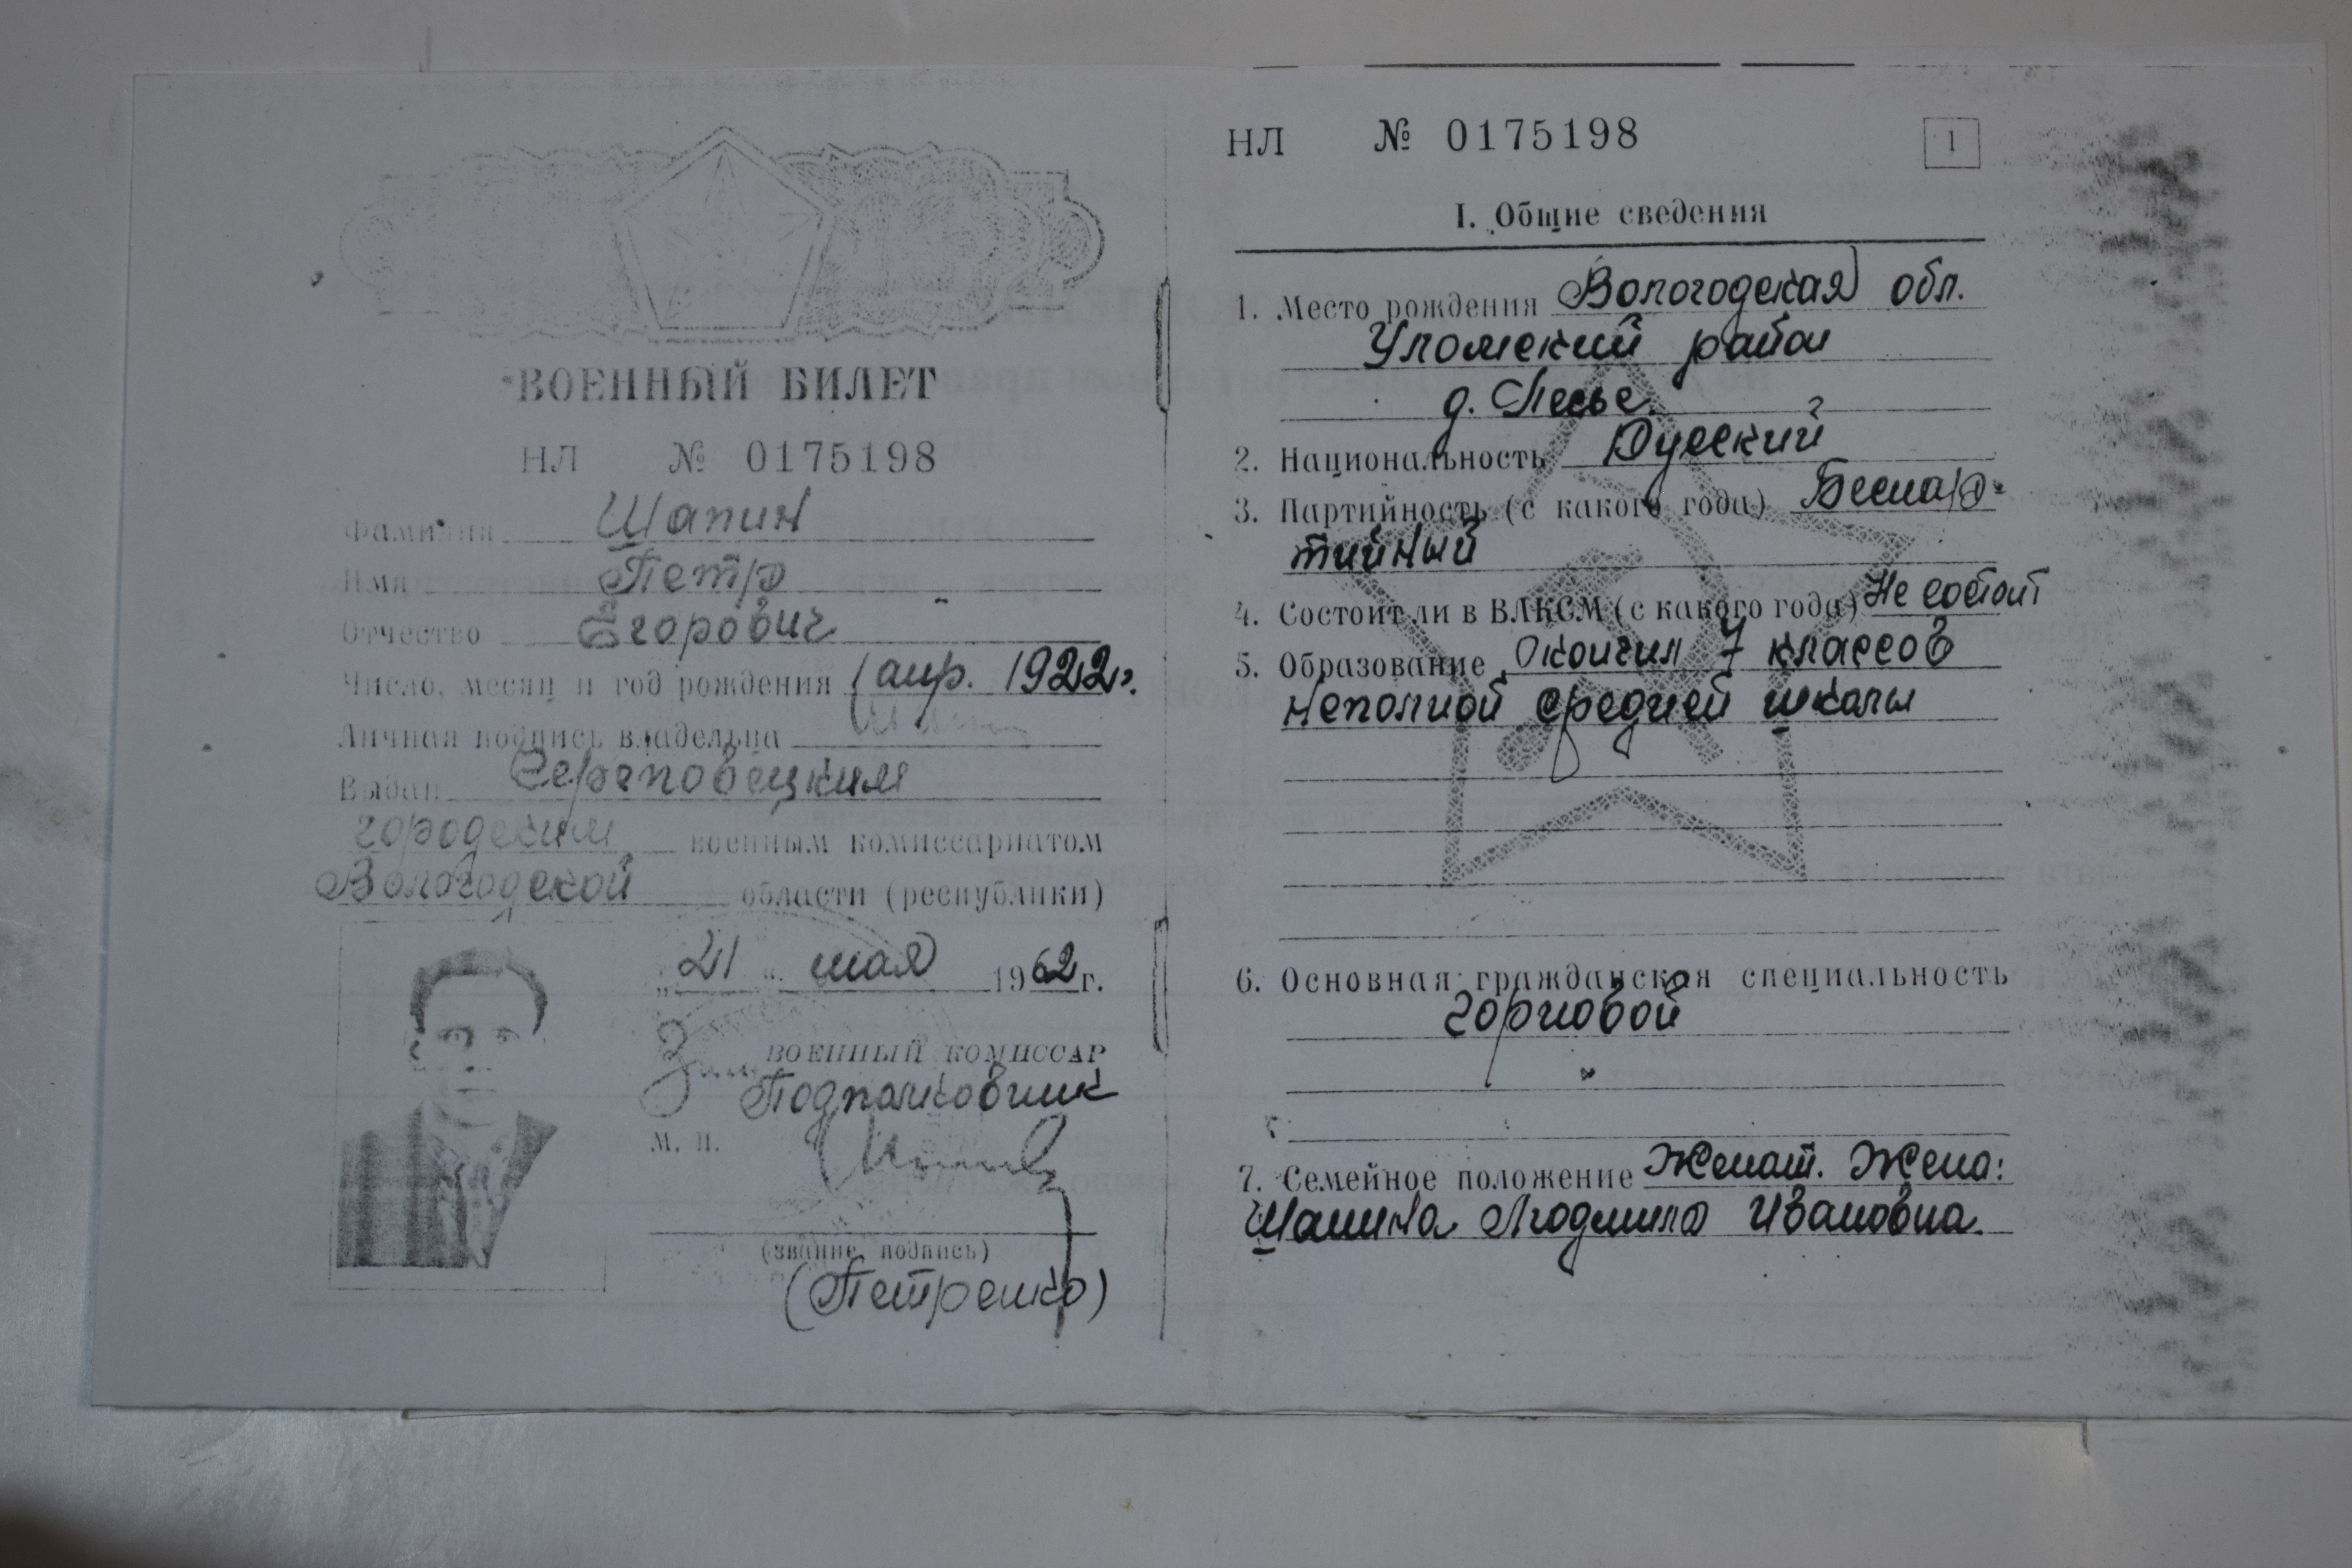 ВОЕННЫЙ БИЛЕТ
НЛ № 0175198
Фамилия Шапин
Имя Петр
Отчество Егорович
Число, месяц и год рождения 1 апр. 1922 г.
Личная подпись владельца
Выдан Череповецким
городским военным комиссариатом
Вологодской области (республики)
„21“ мая 1962 г.
ВОЕННЫЙ КОМИССАР
Подполковник
М. П.
(звание, подпись)
(Петренко)
НЛ № 0175198
1
I. Общие сведения
1. Место рождения Вологодская обл.
Уломский район
д. Песье.
2. Национальность Русский
3. Партийность (с какого года) Беспар-
тийный
4. Состоит ли в ВЛКСМ (с какого года) Не состоит
5. Образование окончил 7 классов
неполной средней школы
6. Основная гражданская специальность
горновой
7. Семейное положение Женат. Жена:
Шапина Людмила Ивановна.